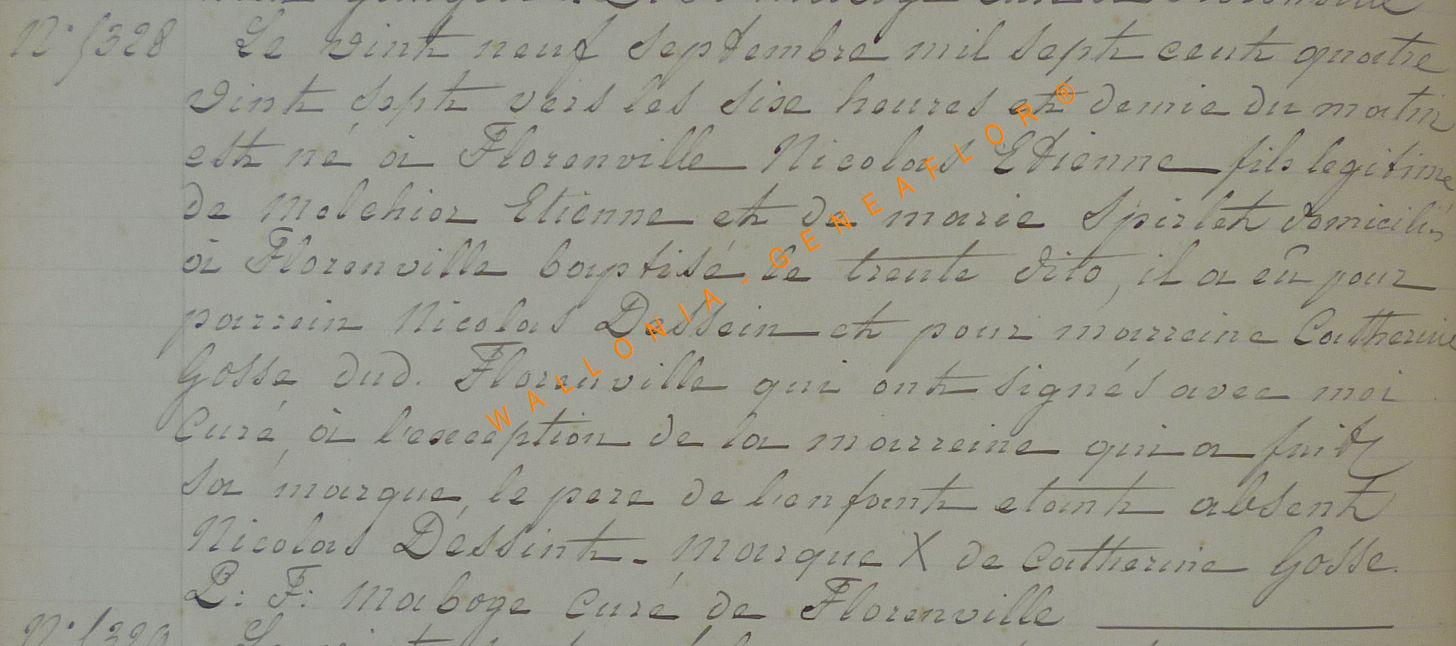 N° 1328 Le vint neuf septembre mil sept cent quatre
vint sept vers les sixe heures et demie du matin
est né à Florenville Nicolas Etienne fils legitime
de Melchior Etienne et de marie Spirlet domiciliés
à Florenville baptisé le trente dito, il a eû pour
parrein Nicolas Dessein et pour marreine Catherine
Gosse dud. Florenville qui ont signés avec moi
Curé, à l'exception de la marreine qui a fait
sa marque, le pere de l'enfant etant absent
Nicolas Dessint - Marque X de Catherine Gosse.
P: F: Maboge Curé de Florenville
N° 1329
WALLONIA - GENEAFLOR ®